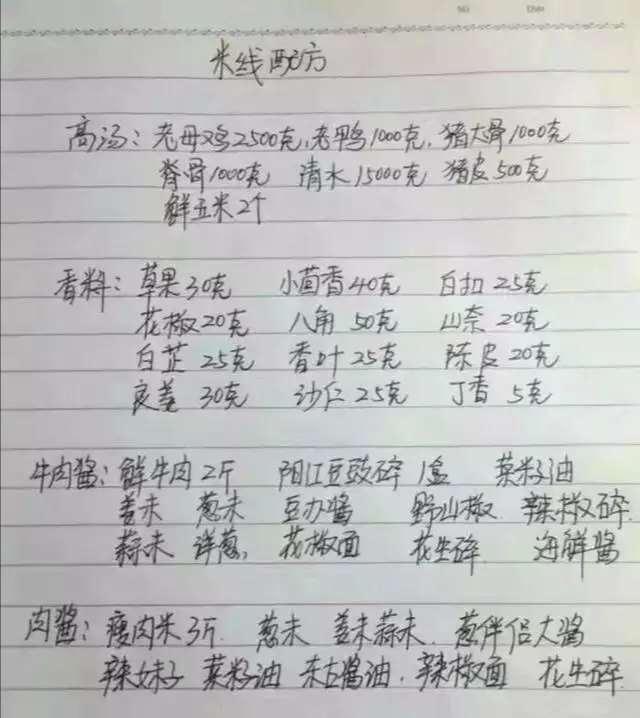 No
Date
米线配方
高汤：老母鸡2500克，老鸭1000克，猪大骨1000克
脊骨1000克 清水15000克 猪皮500克
鲜玉米2个
香料：草果30克 小茴香40克 白扣25克
花椒20克 八角50克 山奈20克
白芷25克 香叶25克 陈皮20克
良姜30克 沙仁25克 丁香5克
牛肉酱：鲜牛肉2斤 阳江豆豉碎1盒 菜籽油
姜末 葱末 豆办酱 野山椒 辣椒碎
蒜末 洋葱， 花椒面 花生碎 海鲜酱
肉酱：瘦肉米3斤. 葱末 姜末蒜末. 葱伴侣大酱
辣妹子 菜籽油 东古酱油，辣椒面 花生碎